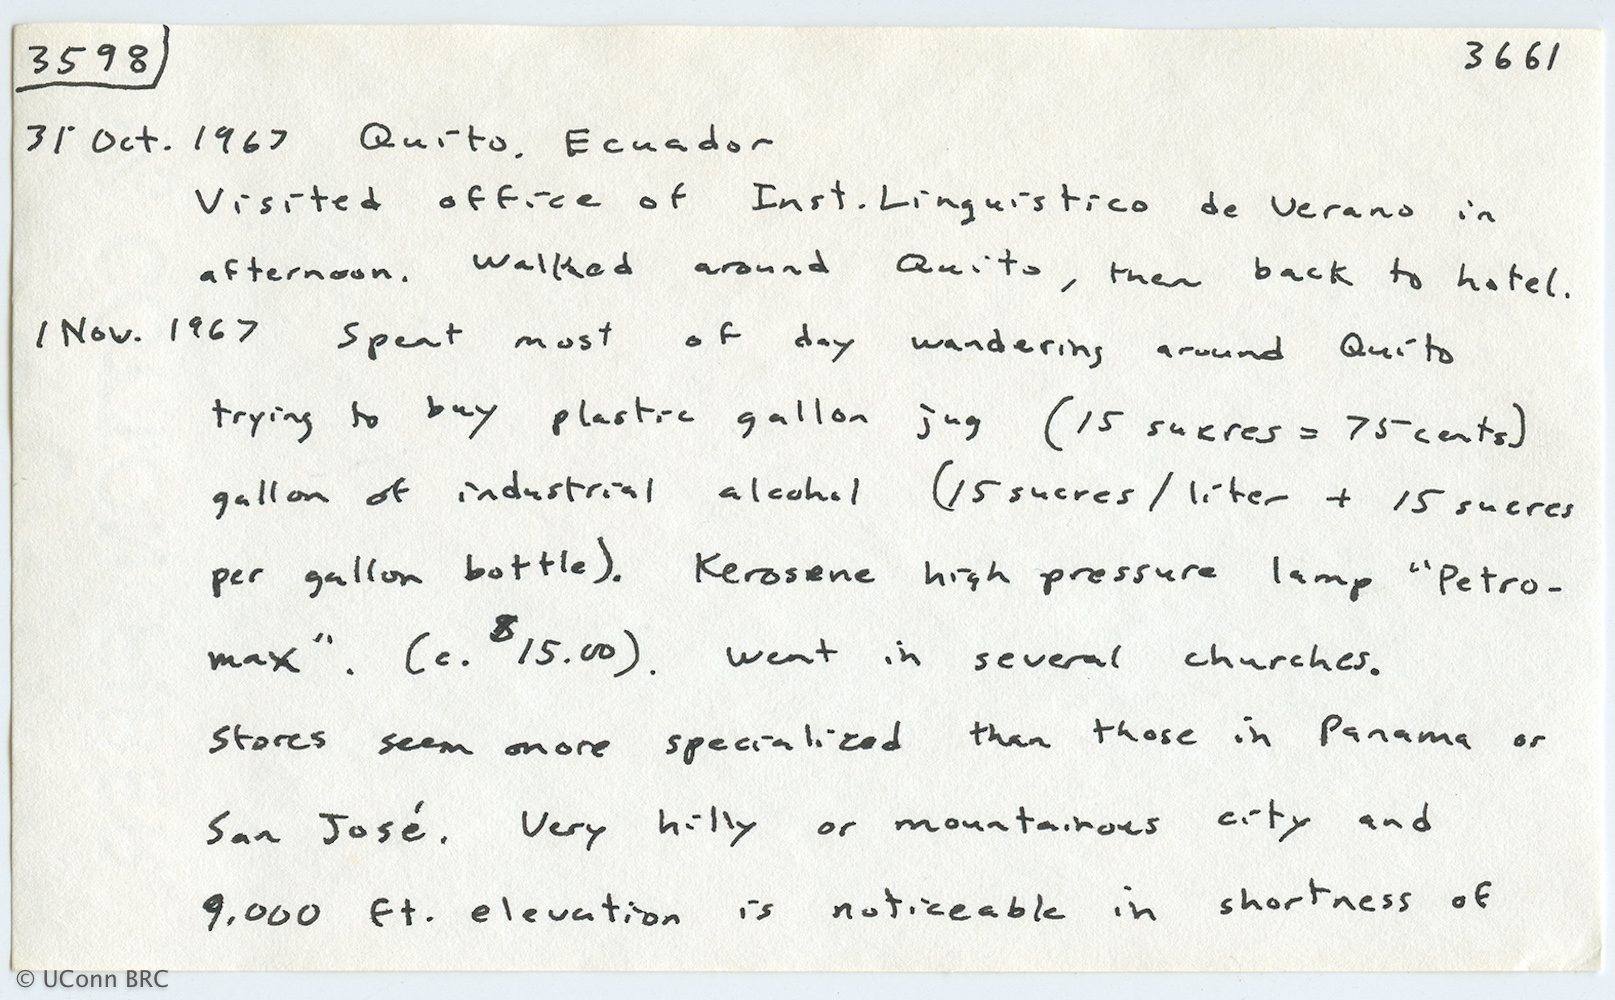 3598 3661
31 Oct. 1967 Quito, Ecuador
Visited office of Inst. Linguistico de Verano in
afternoon. Walked around Quito, then back to hotel.
1 Nov. 1967 Spent most of day wandering around Quito
trying to buy plastic gallon jug (15 sucres = 75 cents)
gallon of industrial alcohol (15 sucres / liter + 15 sucres
per gallon bottle). Kerosene high pressure lamp "Petro-
max". (c. $15.00). Went in several churches.
Stores seem more specialized than those in Panama or
San José. Very hilly or mountainous city and
9,000 ft. elevation is noticeable in shortness of
© UConn BRC